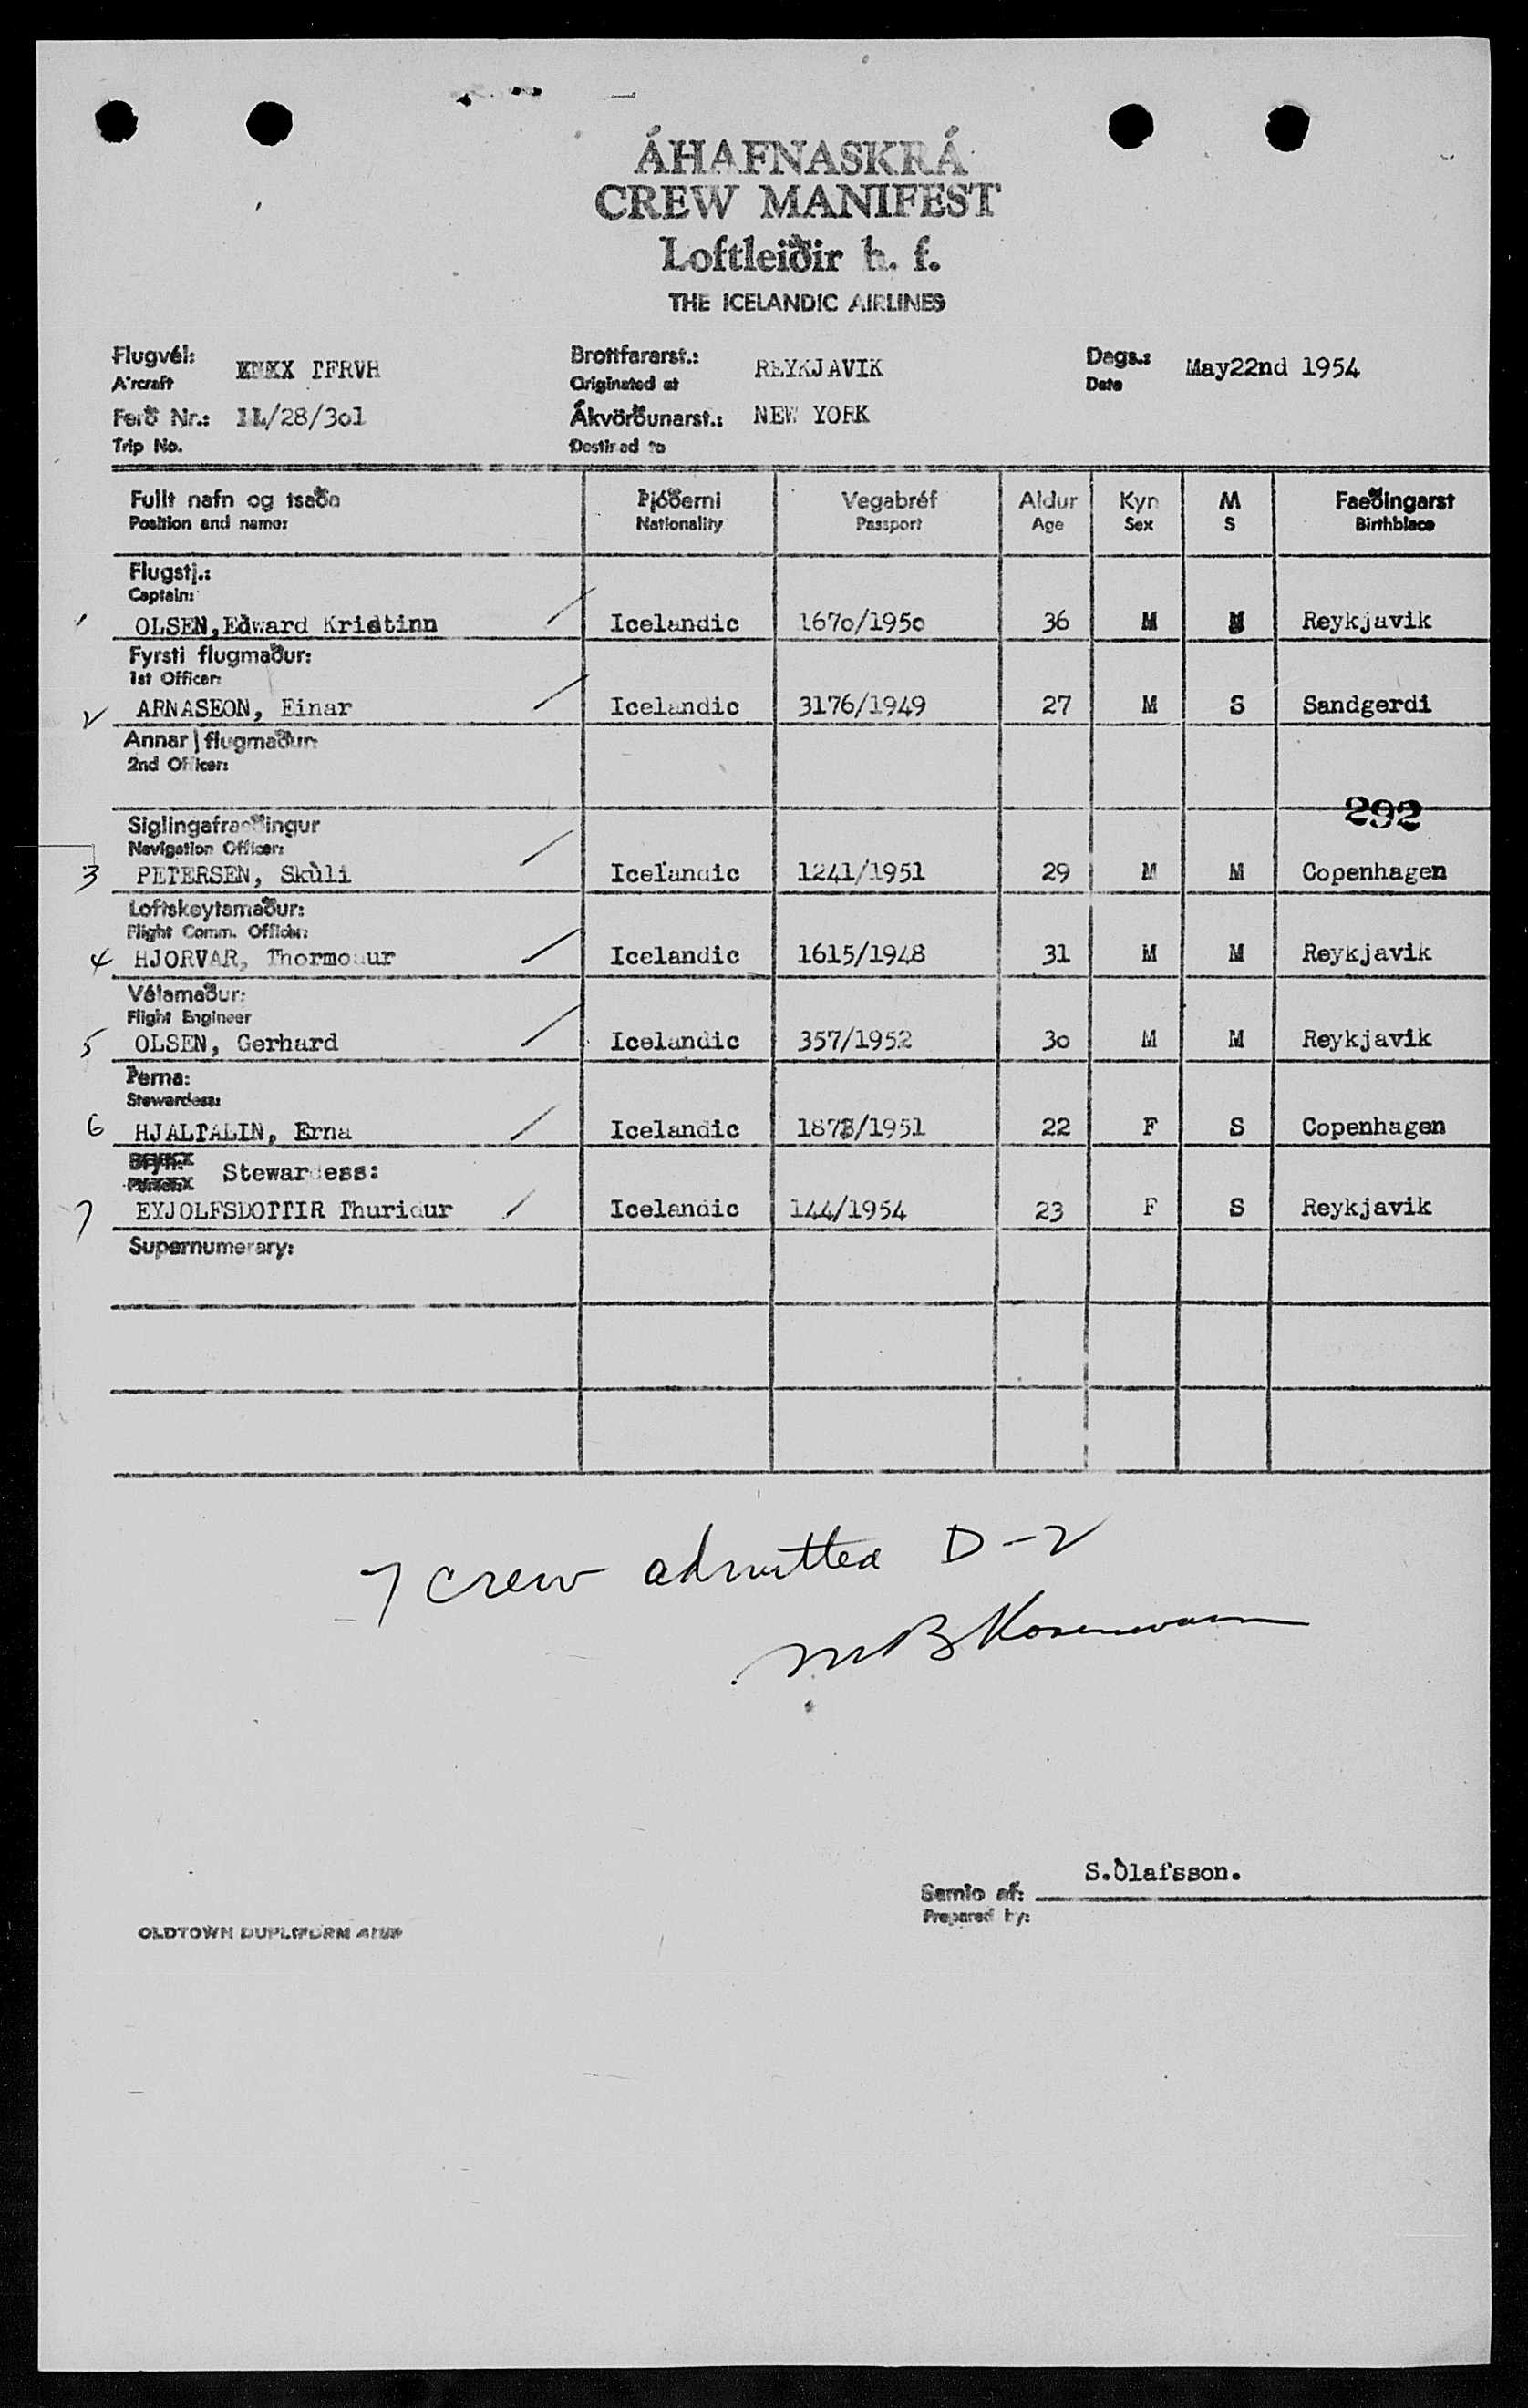 ÁHAFNASKRÁ
CREW MANIFEST
Loftleiðir h. f.
THE ICELANDIC AIRLINES
Flugvél: Brottfararst.: REYKJAVIK Dags.: May22nd 1954
Aircraft Originated at Date
Ferð Nr.: 1L/28/3o1 Ákvörðunarst.: NEW YORK
Trip No. Destined to
Fullt nafn og tsaða Þjóðerni Vegabréf Aldur Kyn M Faeðingarst
Position and name: Nationality Passport Age Sex S Birthblace
Flugstj.:
Captain:
1 OLSEN,Edward Kristinn Icelandic 167o/195o 36 M M Reykjavik
Fyrsti flugmaður:
1st Officer:
2 ARNASEON, Einar Icelandic 3176/1949 27 M S Sandgerdi
Annar flugmaður:
2nd Officer:
292
Siglingafraeðingur
Navigation Officer:
3 PETERSEN, Skùli Icelandic 1241/1951 29 M M Copenhagen
Loftskeytamaður:
Flight Comm. Officer:
4 HJORVAR, Thormodur Icelandic 1615/1948 31 M M Reykjavik
Vélamaður:
Flight Engineer
5 OLSEN, Gerhard Icelandic 357/1952 3o M M Reykjavik
Þerna:
Stewardess:
6 HJALTALIN, Erna Icelandic 1873/1951 22 F S Copenhagen
Stewardess:
7 EYJOLFSDOTTIR Thuridur Icelandic 144/1954 23 F S Reykjavik
Supernumerary:
7 crew admitted D-2
S.Òlafsson.
Samio af:
Prepared by:
OLDTOWN DUPLIFORM